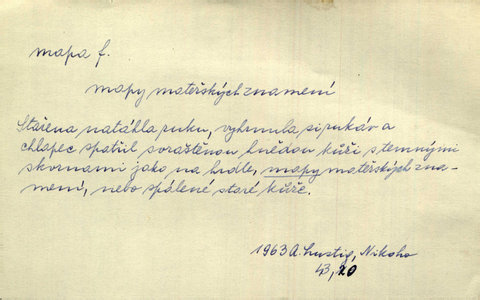 mapa f.
mapy mateřských znamení
Stařena natáhla ruku, vyhrnula si rukáv a
chlapec spatřil svraštěnou hnědou kůži s temnými
skvrnami jako na hrdle, mapy mateřských zna-
mení, nebo spálené staré kůže.
1963 A. Lustig, Nikoho
43, 20